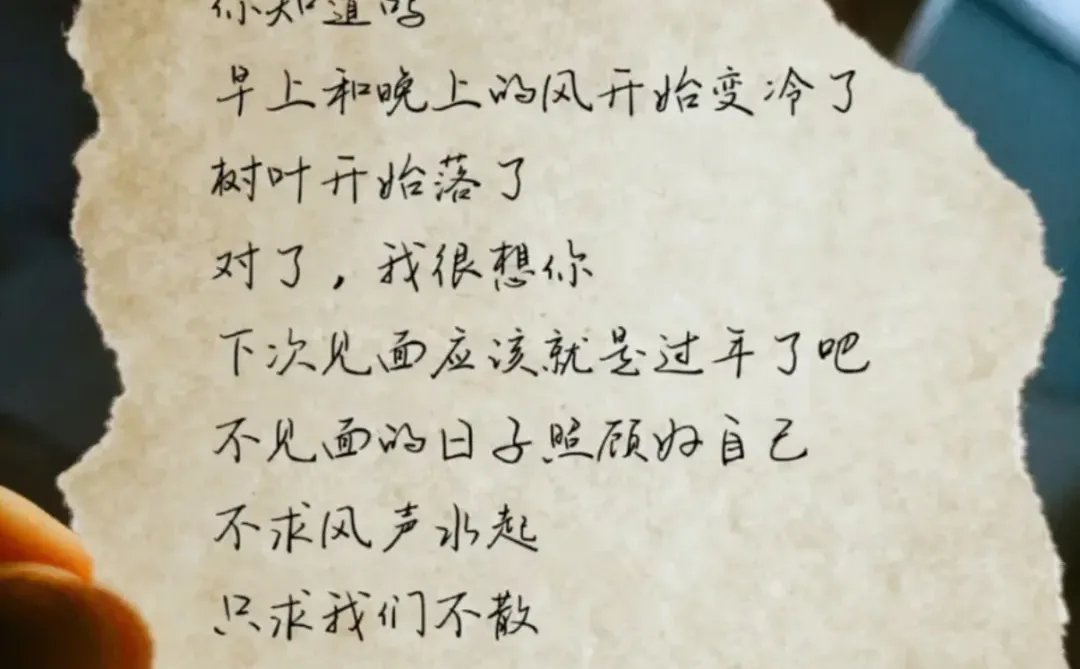 你知道吗
早上和晚上的风开始变冷了
树叶开始落了
对了，我很想你
下次见面应该就是过年了吧
不见面的日子照顾好自己
不求风声水起
只求我们不散